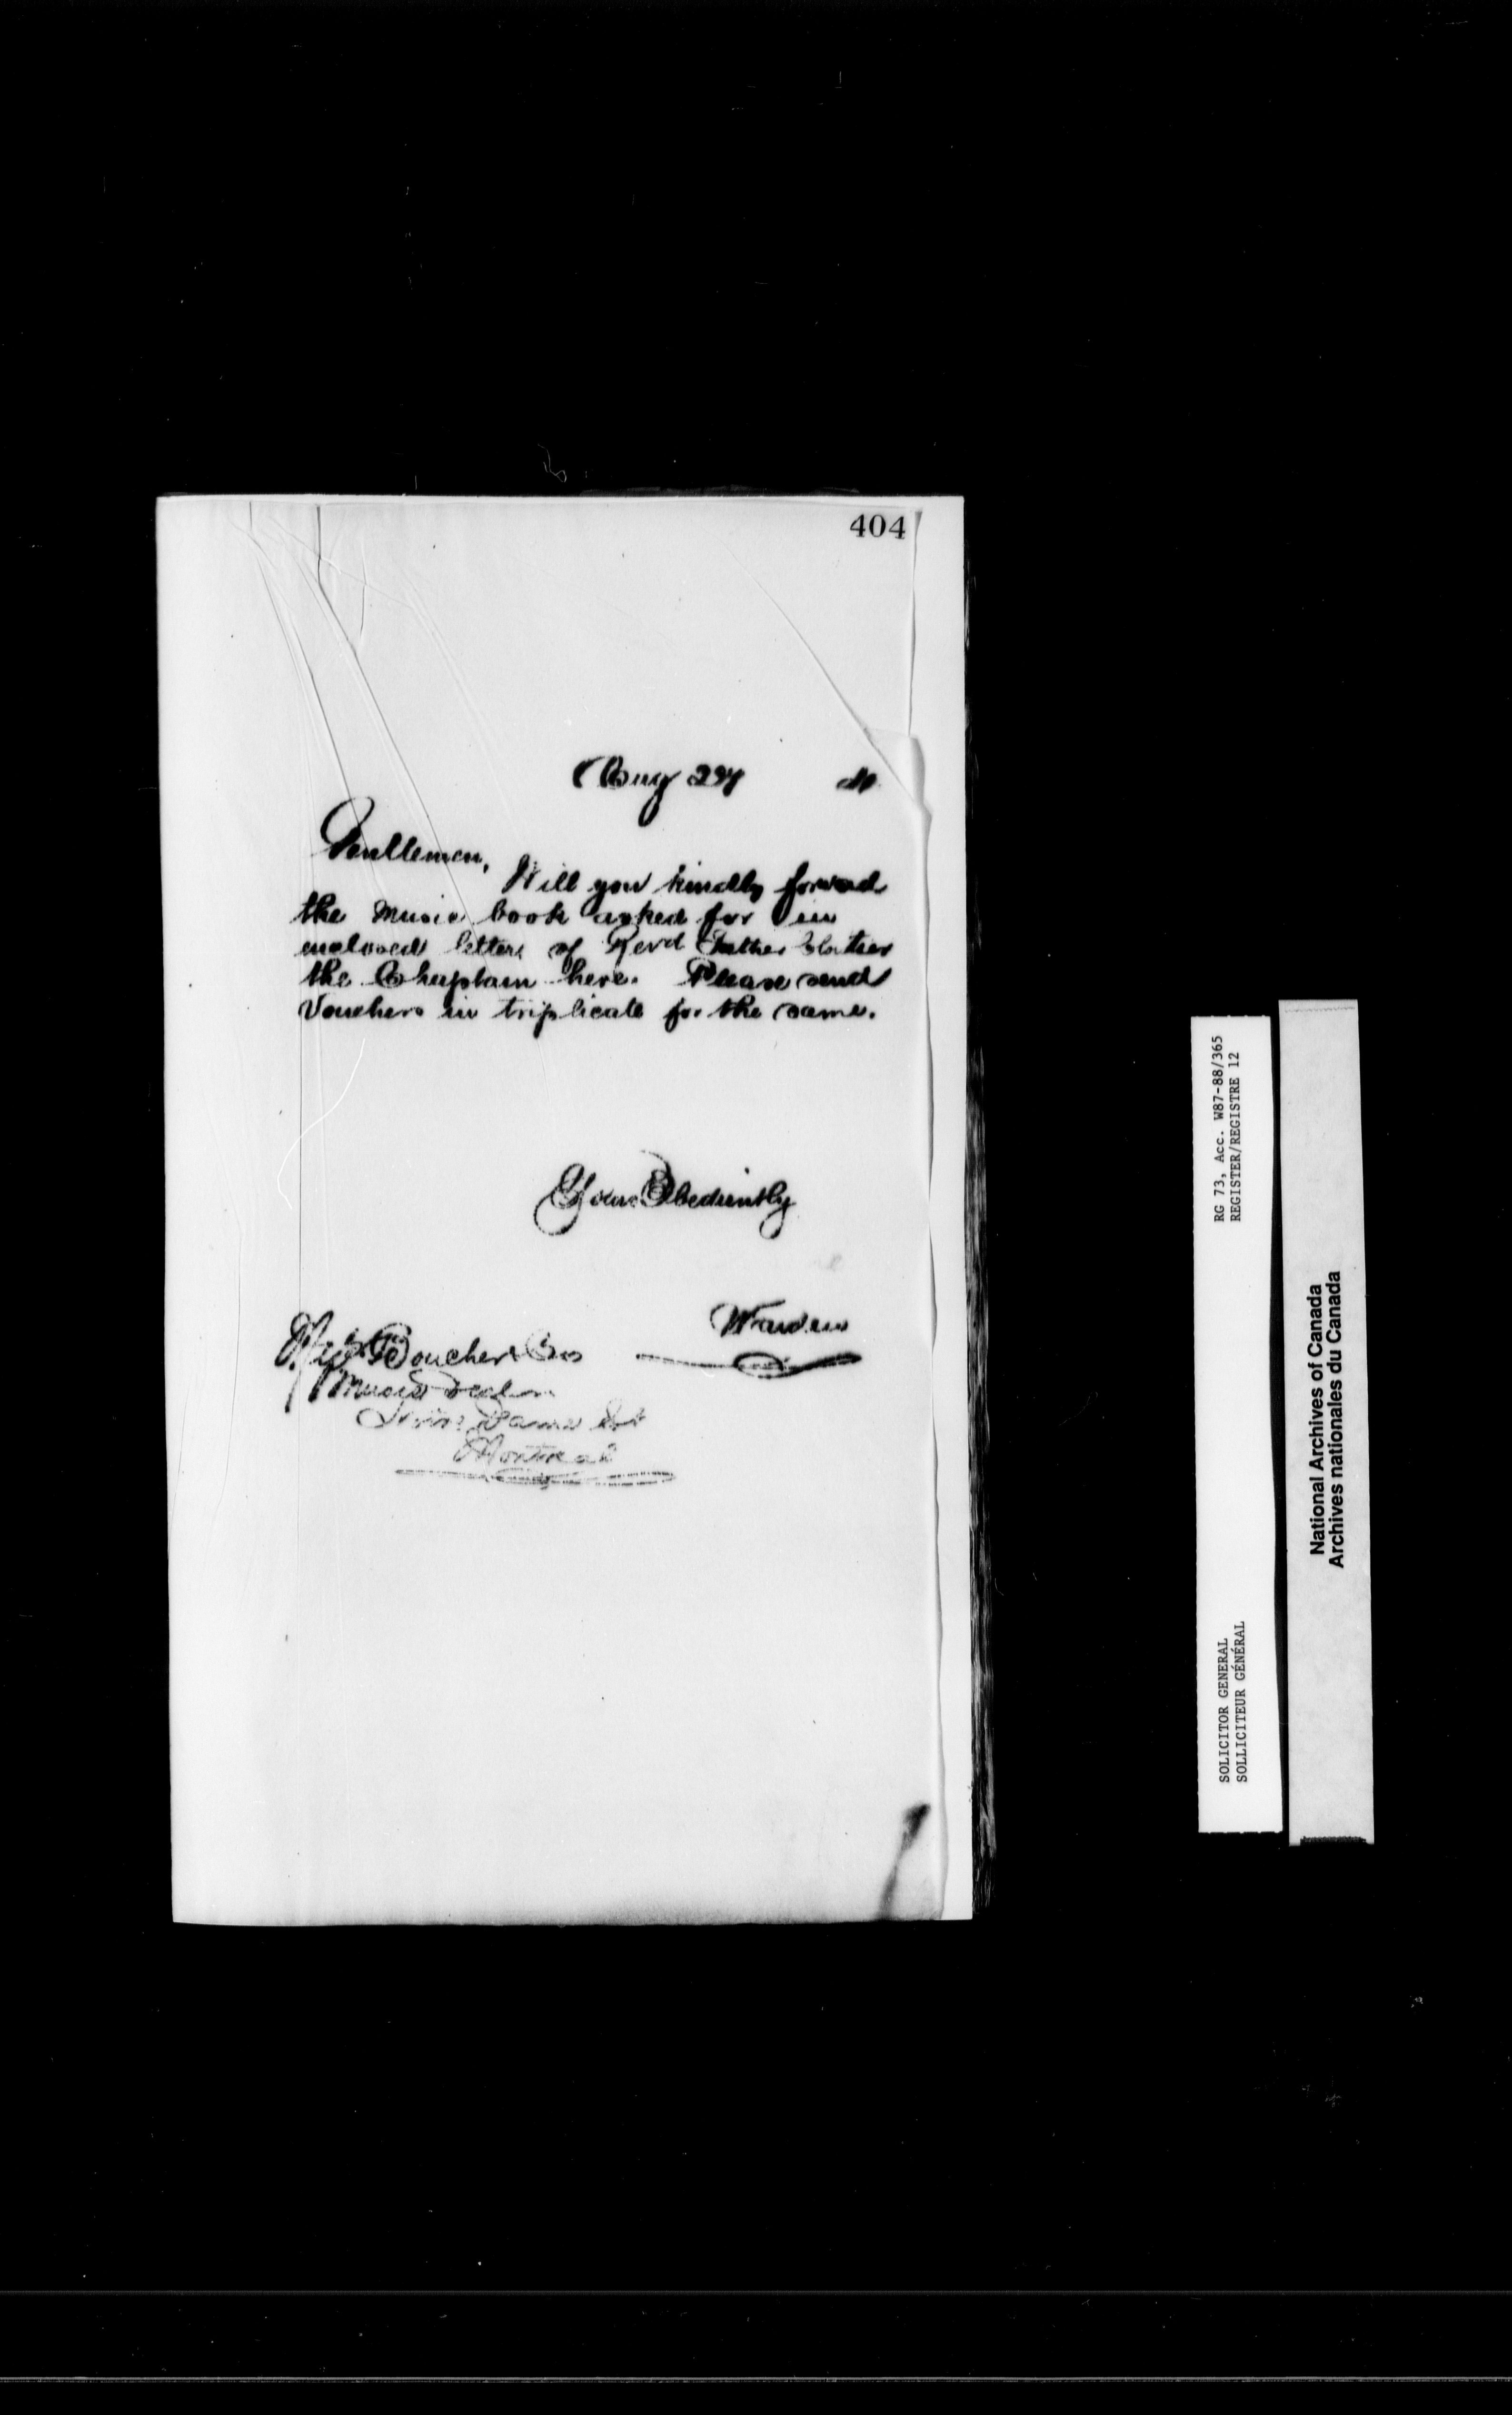 404
Aug 27
Gentlemen,
Will you kindly forward
the Music book asked for in
enclosed letter of Revd Father
the Chaplain here. Please send
Vouchers in triplicate for the same.
Yours Obediently
Warden
Boucher & Co
Music Dealers
Notre Dame St
Montreal
RG 73, Acc. W87-88/365
REGISTER/REGISTRE 12
SOLICITOR GENERAL
SOLLICITEUR GÉNÉRAL
National Archives of Canada
Archives nationales du Canada